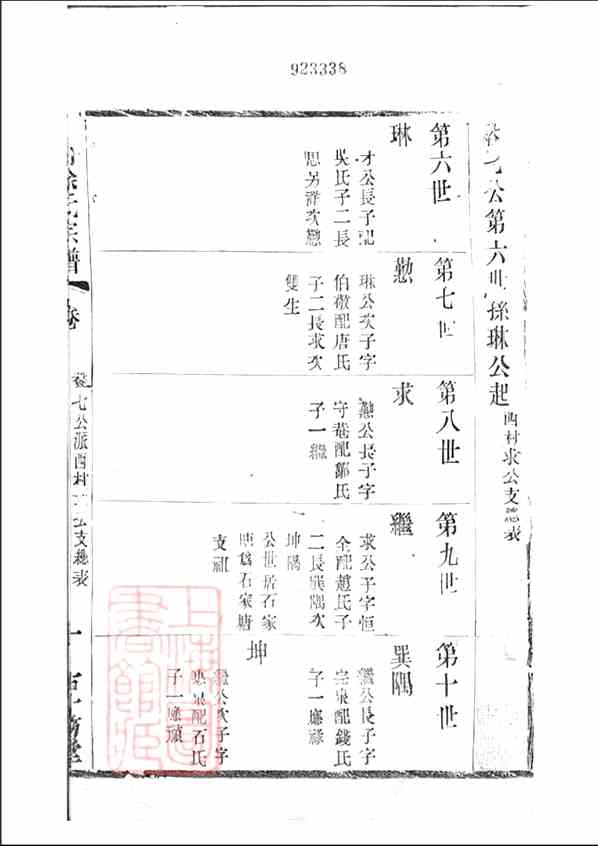 923338
七公第六世孫琳公起
西村求公支總表
第六世
琳
才公長子配
吳氏子二長
思另詳次懃
第七世
懃
琳公次子字
伯敬配唐氏
子二長求次
雙生
第八世
求
懃公長子字
守菴配鄒氏
子一繼
第九世
繼
求公子字恒
全配趙氏子
二長巽隅次
坤隅
公世居石家
塘為石家塘
支祖
第十世
巽隅
繼公長子字
宗泉配錢氏
子一應祿
坤
繼公次子字
惠泉配石氏
子一應禎
徐氏宗譜
卷
七公派西村 公支總表
一
上海圖書館